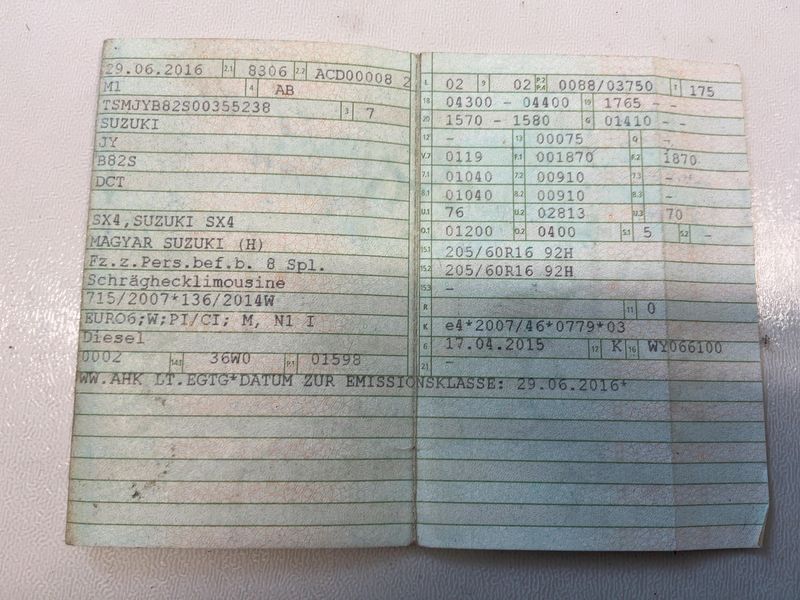 29.06.2016 2.1 8306 2.2 ACD00008 2
M1 4 AB
TSMJYB82S00355238 3 7
SUZUKI
JY
B82S
DCT
SX4,SUZUKI SX4
MAGYAR SUZUKI (H)
Fz.z.Pers.bef.b. 8 Spl.
Schräghecklimousine
715/2007*136/2014W
EURO6;W;PI/CI; M, N1 I
Diesel
0002 14.1 36W0 P.1 01598
WW.AHK LT.EGTG*DATUM ZUR EMISSIONSKLASSE: 29.06.2016*
L 02 9 02 P.2 P.4 0088/03750 T 175
18 04300 - 04400 19 1765 - -
20 1570 - 1580 G 01410 - -
12 - 13 00075 Q -
V.7 0119 F.1 001870 F.2 1870
7.1 01040 7.2 00910 7.3 -
8.1 01040 8.2 00910 8.3 -
U.1 76 U.2 02813 U.3 70
O.1 01200 O.2 0400 S.1 5 S.2 -
15.1 205/60R16 92H
15.2 205/60R16 92H
15.3 -
R 11 0
K e4*2007/46*0779*03
6 17.04.2015 17 K 16 WY066100
21 -